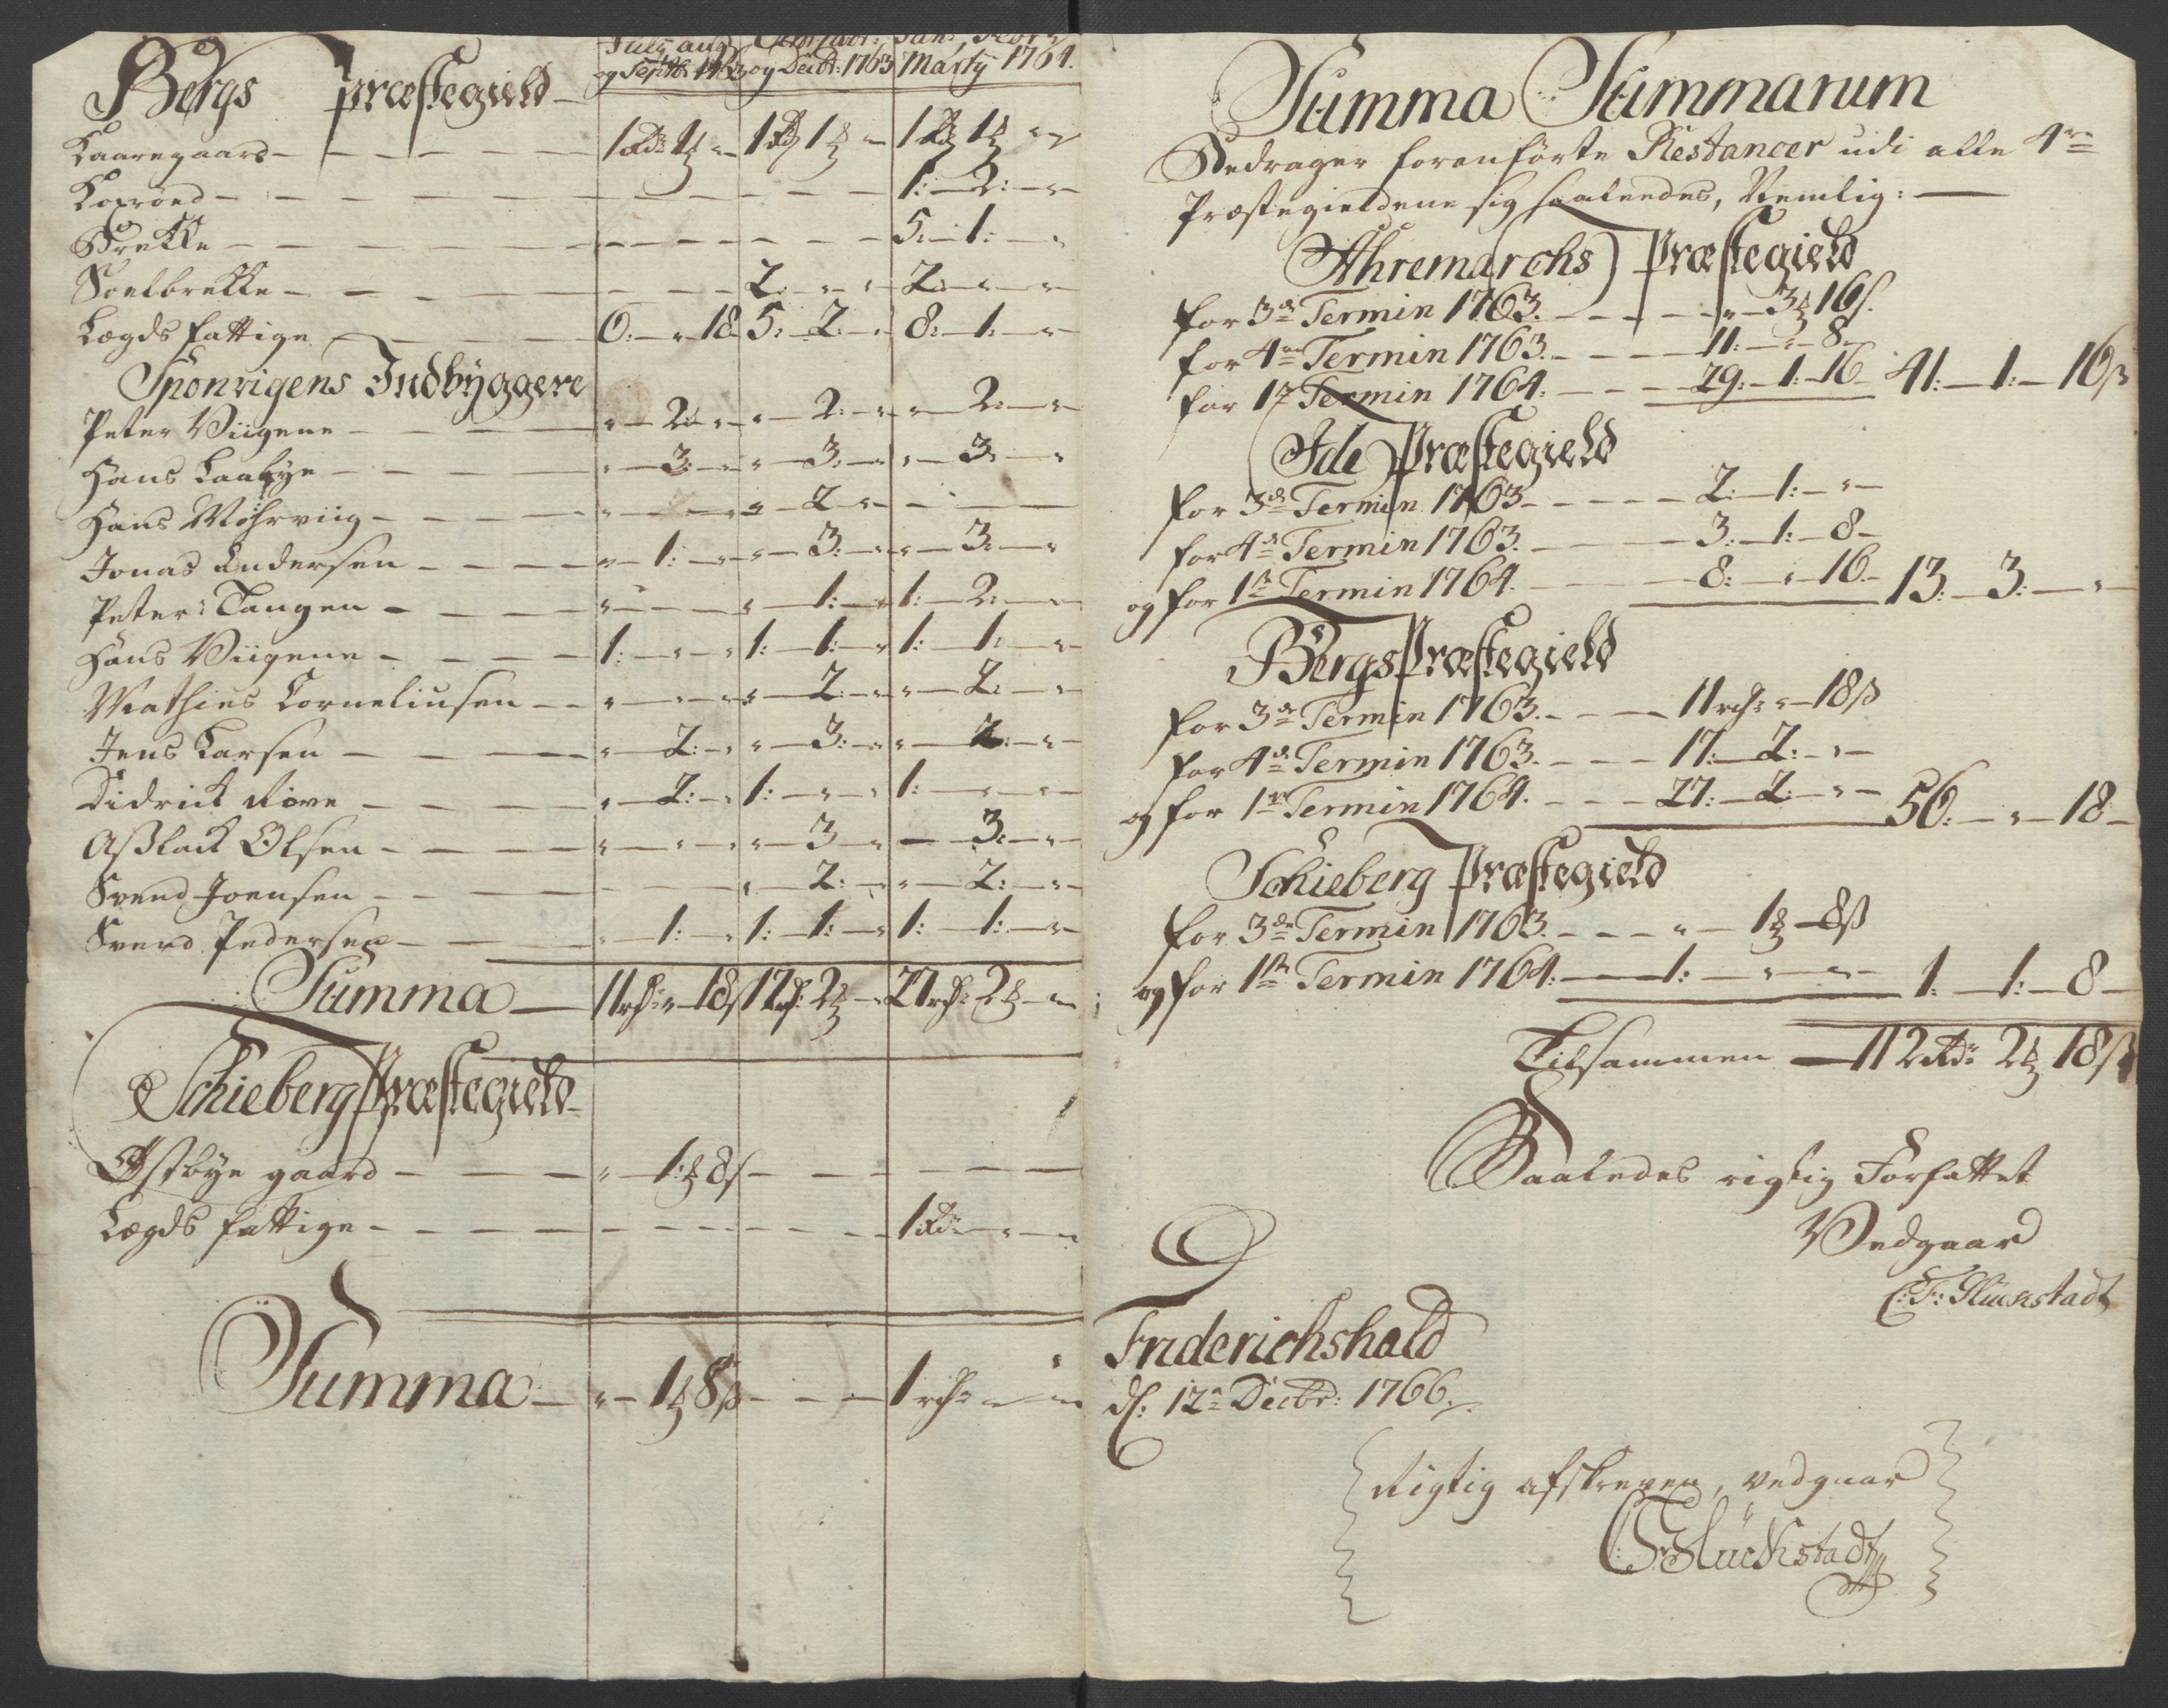 July aug Octbr: Novbr: Jan: Febr:
og Septbr 1763 og Decbr: 1763 Martij 1764.
Bergs Præstegield
Kaaregaard 1 Rd 1 ₰ " 1 Rd 1 ₰ " 1 Rd 1 ₰ "
Torpröed 1: 2: "
Brekke 5: 1: "
Soelbrekke 2: " " 2: " "
Lægds fattige 6: " 18 5: 2: " 8: 1: "
Sponvigens Indbyggere
Peter Viigene " 2: " " 2: " " 2: "
Hans Laabye " 3: " " 3: " " 3: "
Hans Möhrviig " " 2 "
Jonas Andersen " 1: " " 3: " " 3: "
Peter Tangen " " 1: " 1: 2: "
Hans Viigene 1: " " 1: 1: " 1: 1: "
Mathies Corneliusen " " " " 2: " " 2: "
Jens Larsen " 2: " " 3: " " 2: "
Didrick Röve " 2: " 1: " " 1: " "
Aslack Olsen " " " " 3 " 3: "
Svend Joensen " 2: " " 2: "
Svend Pedersen " 1: " 1: 1: " 1: 1: "
Summa 11 rd " 18 s 17 rd: 2 ₰ " 27 rd: 2 ₰ "
Schieberg Præstegield
Østbye gaard " 1: ₰ 8 s
Lægds fattige 1 Rd " "
Summa " 1 ₰ 8 ß 1 rd " "
Summa Summarum
Bedrager foranförte Restancer udi alle 4re
Præstegieldene sig saaledes, Nemlig:
Ahremarchs Præstegield
for 3de Termin 1763. " 3 ₰ 16 s.
for 4de Termin 1763. 11: " 8
for 1te Termin 1764. 29: 1: 16 41: 1: 16 ß
Ide Præstegield
for 3de Termin 1763 2: 1: "
for 4de Termin 1763. 3: 1: 8
og for 1te Termin 1764. 8: " 16 13: 3: "
Bergs Præstegield
for 3de Termin 1763. 11 rd: " 18 ß
for 4de Termin 1763. 17: 2: "
og for 1te Termin 1764. 27: 2: " 56: " 18
Schieberg Præstegield
for 3de Termin 1763. " 1 ₰ 8 ß
og for 1te Termin 1764. 1: " " 1: 1: 8
Tilsammen 112 Rd: 2 ₰ 18 ß
Saaledes rigtig Forfattet
Vedgaar
C: F: Glückstadt
Friderichshald
d: 12te Decbr: 1766.
Rigtig afskreven, vedgaar
CFGlückstadt